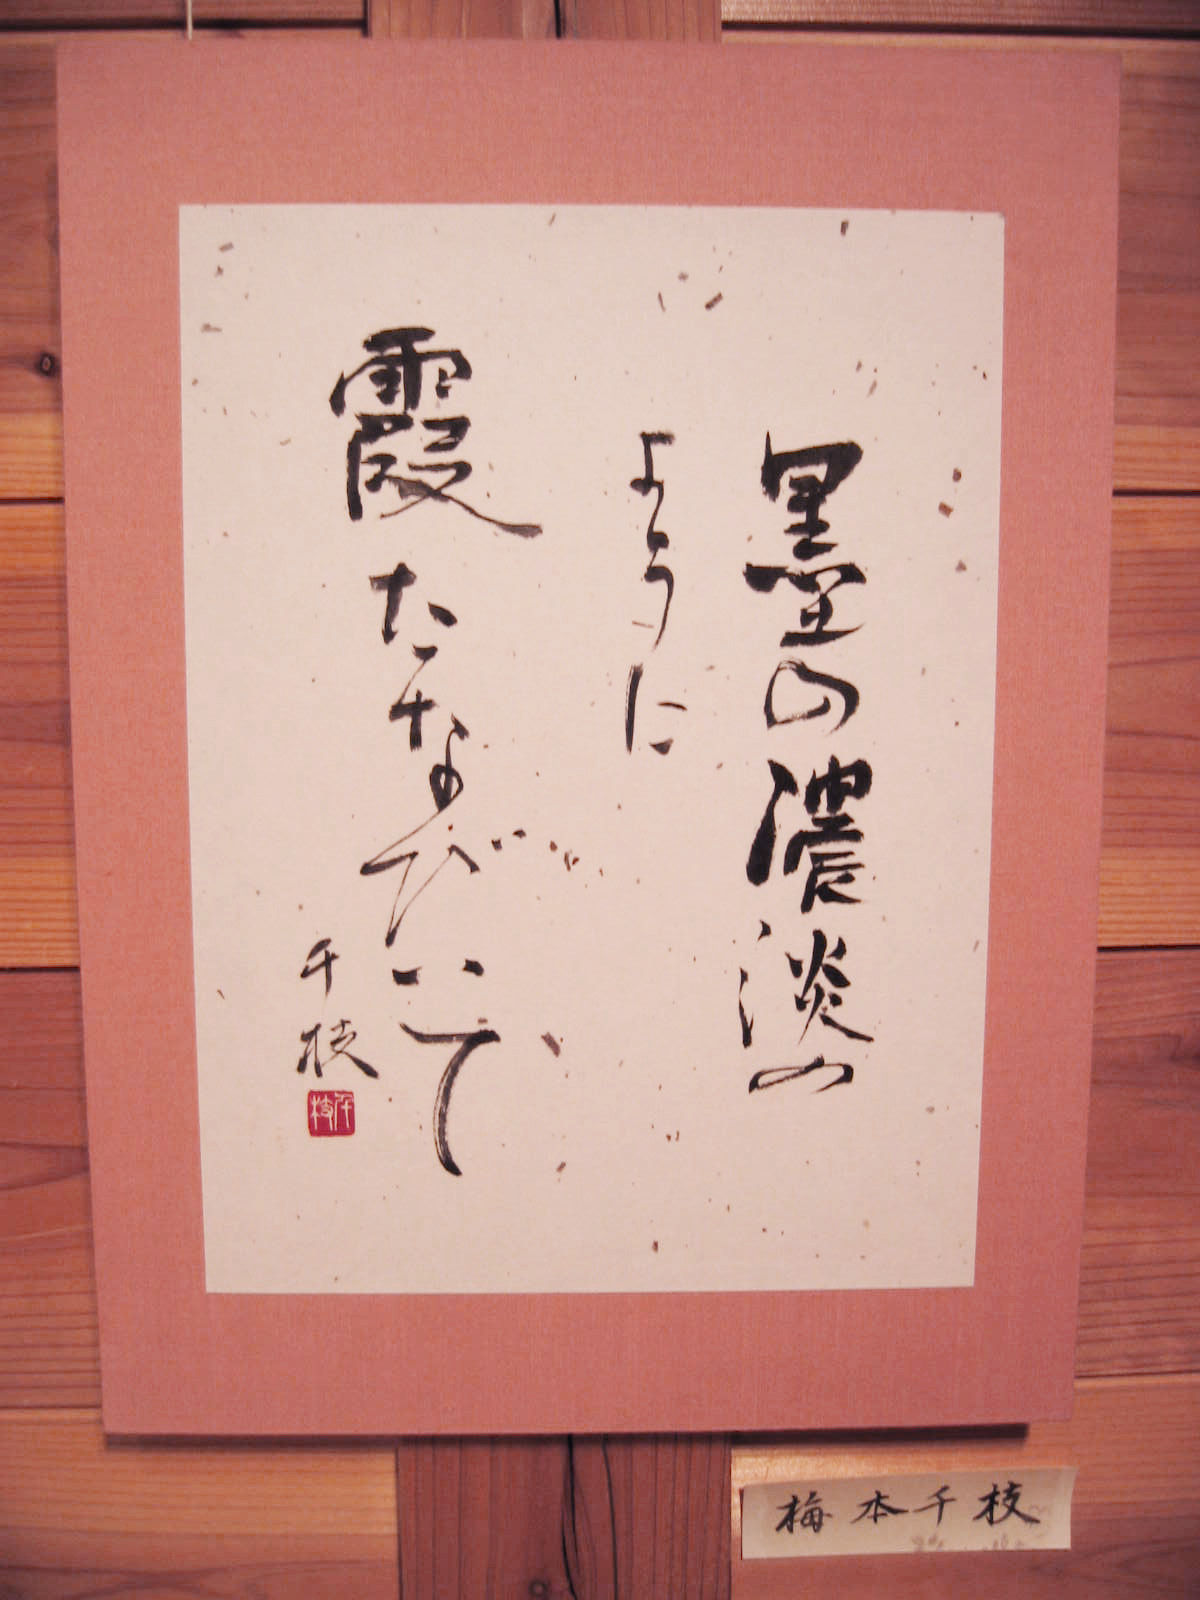 墨の濃淡の
ように
霞たなびいて
千枝
千枝
梅本千枝